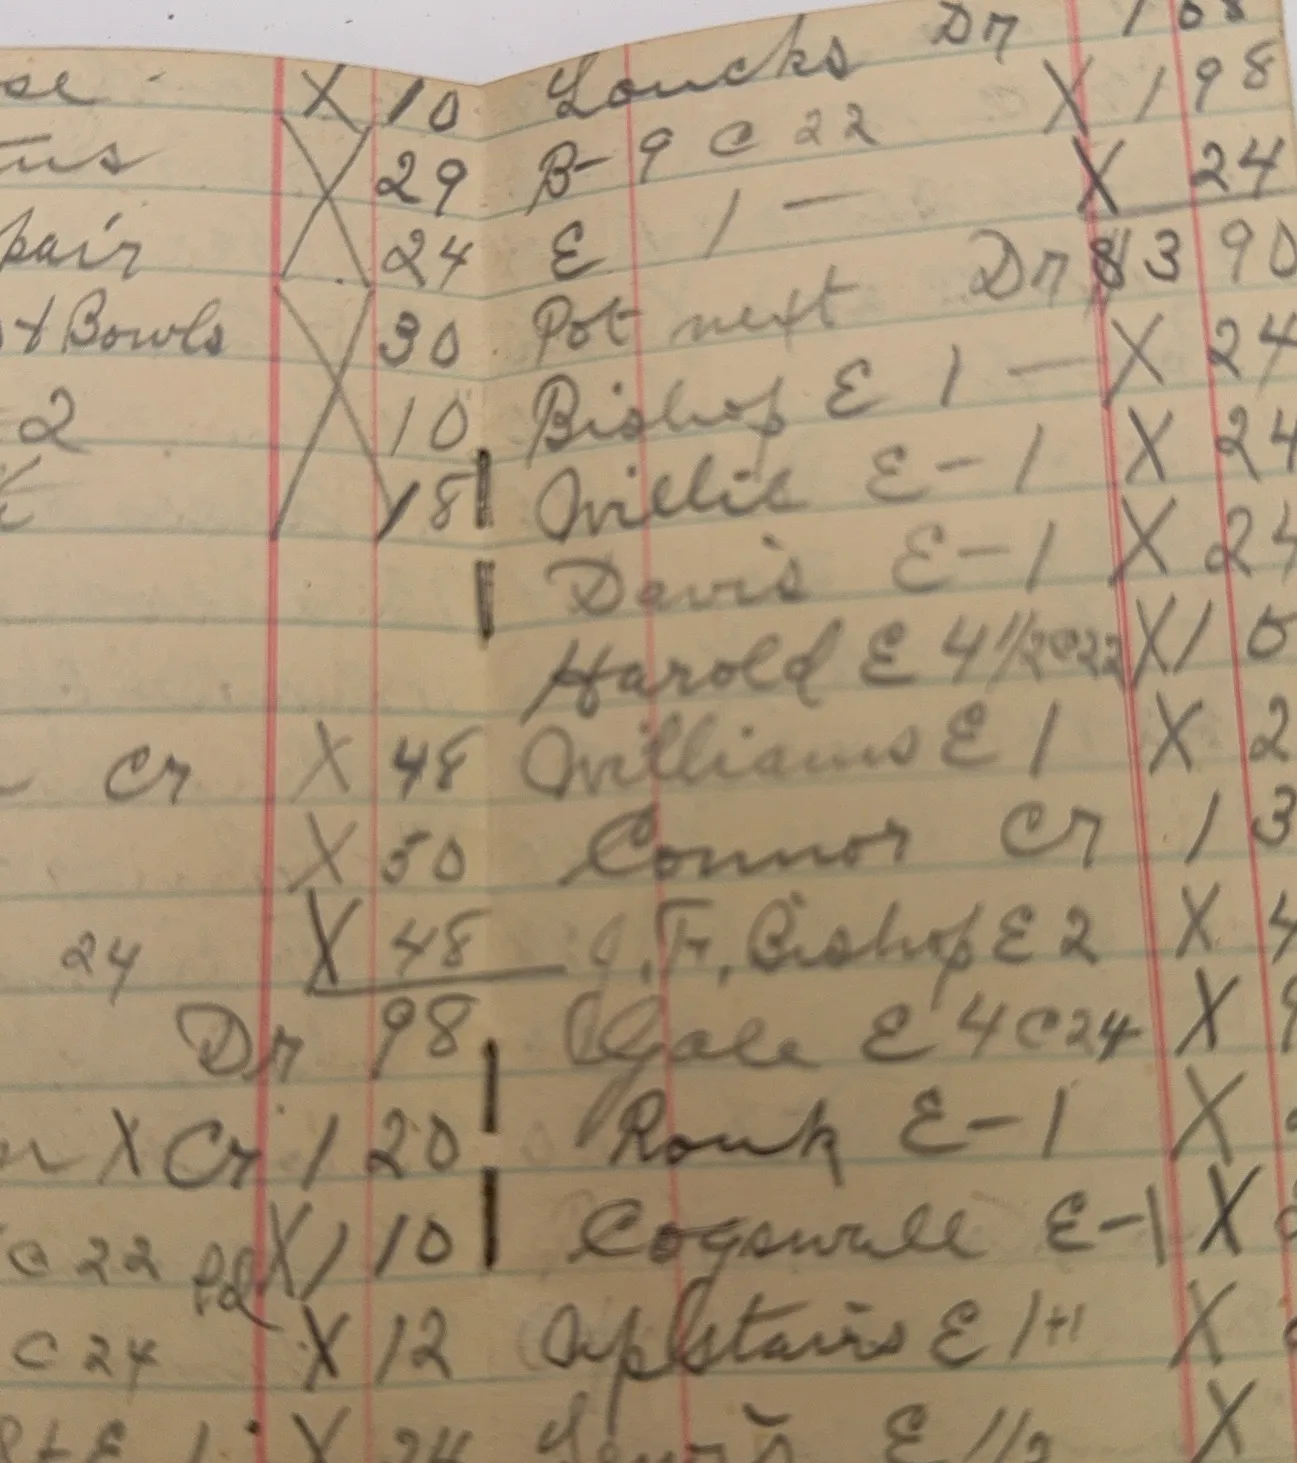 se X 10
tus 29
pair 24
st Bowls 30
2 10
18
Cr X 48
X 50
24 X 48
Dr 98
X Cr 1 20
C 22 Pd X 1 10
C 24 X 12
E 1 X 24
Loucks Dr 1 68
B- 9 C 22 X 1 98
E 1 — X 24
Pot next Dr $3 90
Bishop E 1 — X 24
Willit E - 1 X 24
Davis E - 1 X 24
Harold E 4 1/2 C 22 X 1 0
Williams E 1 X 2
Connor Cr 1 3
J. F. Bishop E 2 X 4
Gale E 4 C 24 X 9
Rouk E - 1 X
Cogswell E - 1 X
Upstairs E 1 + 1 X
E 1/2 X